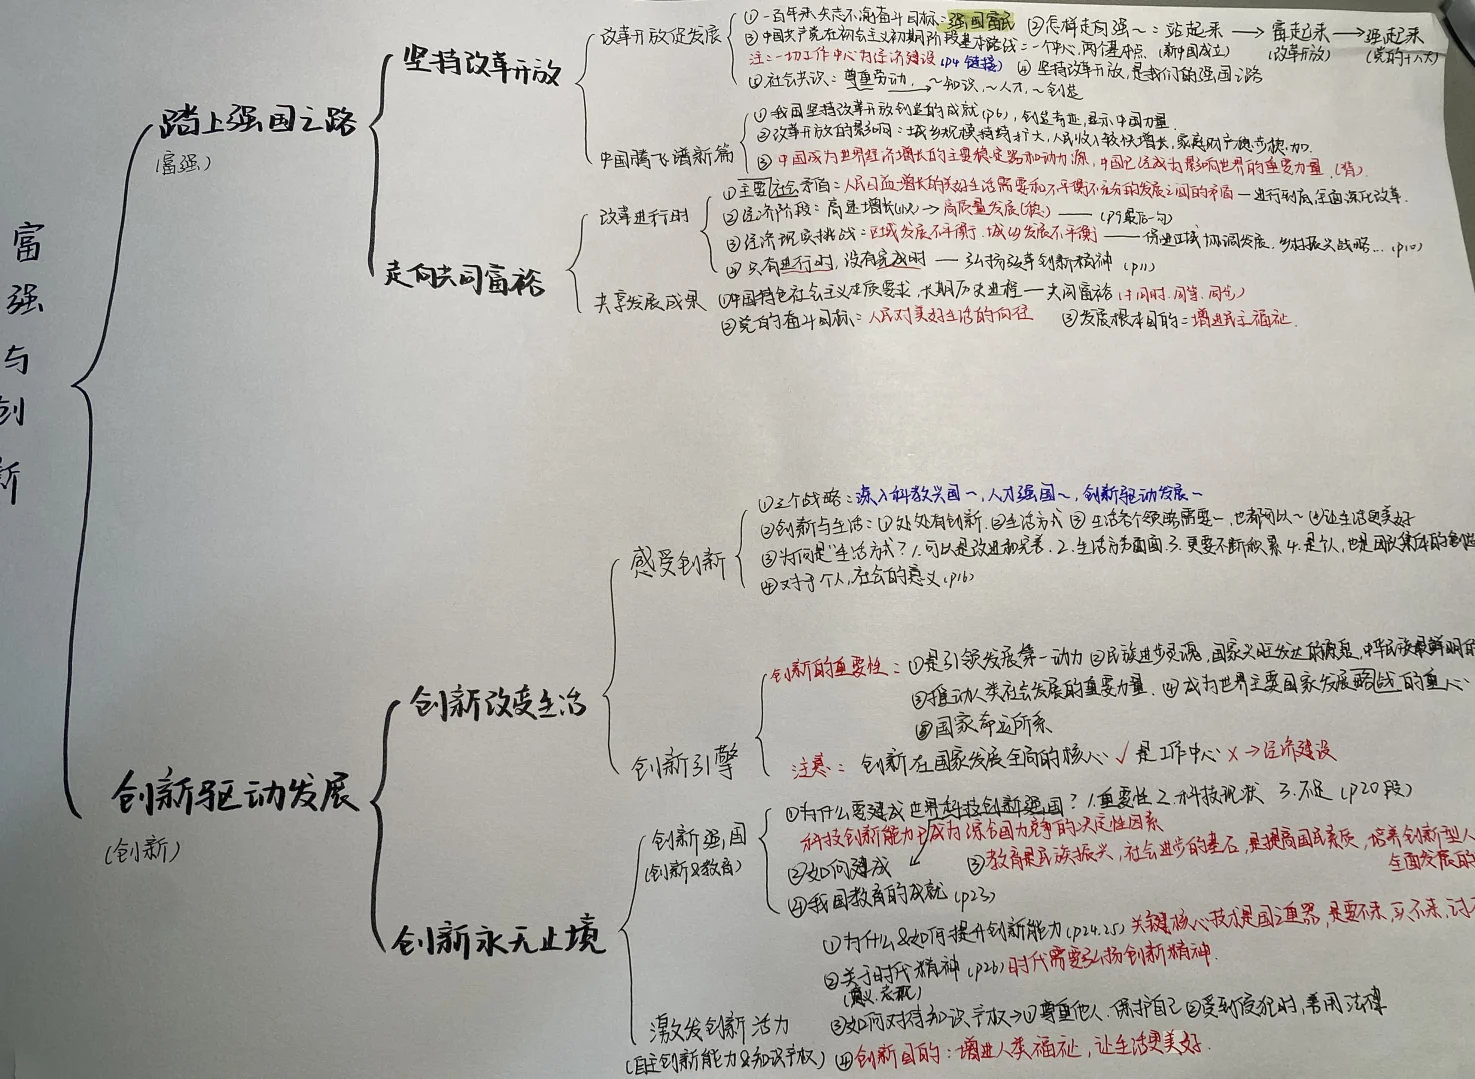 富强与创新
踏上强国之路
(富强)
坚持改革开放
改革开放促发展
①一百年来矢志不渝奋斗目标:强国富民 ②怎样走向强~:站起来→富起来→强起来
(新中国成立) (改革开放) (党的十八大)
③中国共产党在初会主义初期阶段基本路战:一个中心,两个基本点
注:一切工作中心为经济建设(P4 链接) ④坚持改革开放,是我们的强国之路
⑤社会共识:尊重劳动,~知识,~人才,~创造
中国腾飞谱新篇
①我国坚持改革开放创造的成就(P6),创造奇迹,显示中国力量
②改革开放的影响:城乡规模持续扩大,人民收入较快增长,家庭财产稳步增加.
③中国成为世界经济增长的主要稳定器和动力源,中国已经成为影响世界的重要力量.(背)
走向共同富裕
改革进行时
①主要社会矛盾:人民日益增长的美好生活需要和不平衡不充分的发展之间的矛盾—进行到底,全面深化改革.
②经济阶段:高速增长→高质量发展——(P9最后一句)
③经济现实挑战:区域发展不平衡.城乡发展不平衡——促进区域协调发展.乡村振兴战略...(P10)
④只有进行时,没有完成时—弘扬改革创新精神(P11)
共享发展成果
①中国特色社会主义本质要求,长期历史进程—共同富裕
②党的奋斗目标:人民对美好生活的向往 ③发展根本目的:增进民生福祉.
创新驱动发展
(创新)
创新改变生活
感受创新
①三个战略:深入科教兴国~,人才强国~,创新驱动发展~
②创新与生活:①处处有创新.②生活方式 ③生活各个领域需要~,也都可以~ ④让生活更美好
③为何是"生活方式? 1.可以是改进和完善.2.生活方方面面.3.更要不断积累 4.是个人,也是团队集体的创造
④对于个人,社会的意义(P16)
创新引擎
创新的重要性:①是引领发展第一动力 ②民族进步灵魂,国家兴旺发达的源泉,中华民族最鲜明的
③推动人类社会发展的重要力量.④成为世界主要国家发展略战的重心
⑤国家命运所系
注意:创新在国家发展全局的核心✓ 是工作中心×→经济建设
创新永无止境
创新强国
(创新&教育)
①为什么要建成世界科技创新强国? 1.重要性 2.科技现状 3.不足(P20段)
科技创新能力已成为综合国力竞争的决定性因素
②如何建成 ③教育是民族振兴,社会进步的基石,是提高国民素质,培养创新型人
全面发展的
④我国教育的成就(P23)
激发创新活力
(自主创新能力&知识产权)
①为什么&如何提升创新能力(P24.25)关键核心技术是国之重器,是要不来,买不来,讨不
②关于时代精神(P26)时代需要弘扬创新精神.
③如何对待知识产权→①尊重他人.保护自己 ②受到侵犯时,善用法律
④创新目的:增进人类福祉,让生活更美好.